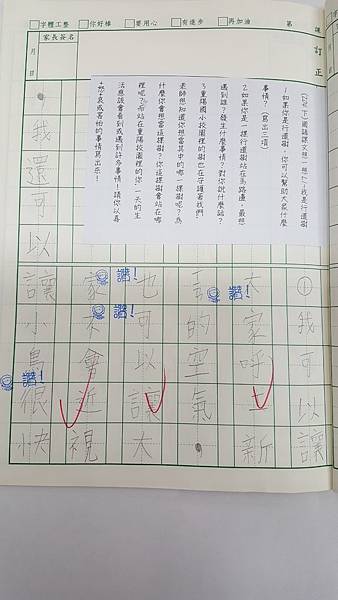 字體工整 你好棒 要用心 有進步 再加油 第 課 訂正
家長簽名
月 日
國語課文想一想 我是行道樹
1.如果你是行道樹,你可以幫助大家什麼
事情?(寫出三項)
2.如果你是一棵行道樹站在馬路邊,最想
遇到誰?發生什麼事情?對你說什麼話?
3.重陽國小校園裡的樹也在守護著我們,
老師想知道你想當其中的哪一棵樹呢?為
什麼你會想當這棵樹?你這棵樹會站在哪
裡呢?而站在重陽校園裡的你一天的生
活應該會看到或遇到許多事情!請你以喜
怒哀或害怕的事情寫出來!
①我可以讓
大家呼吸新
的空氣。
也可以讓大
家不會近視
,我還可以讓小鳥很快
讚!
讚!
讚!
讚!